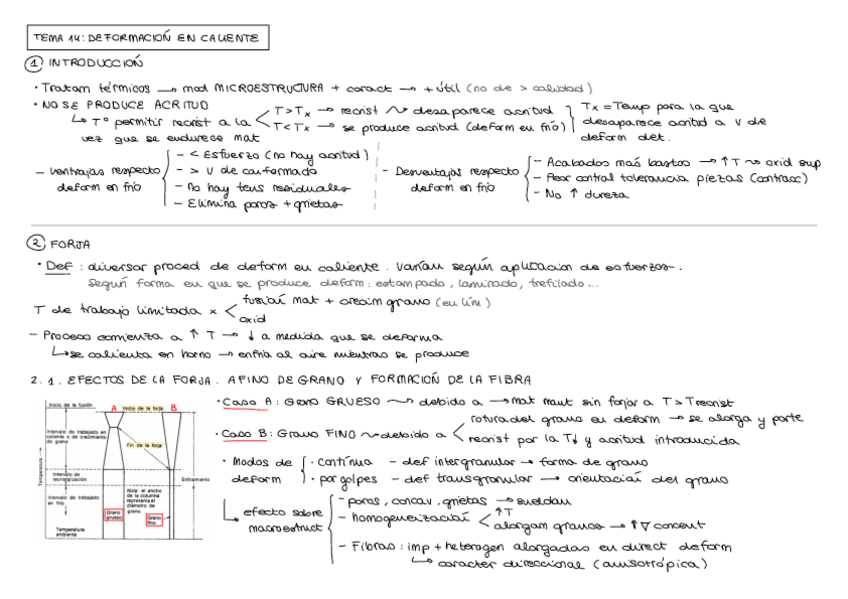 TEMA 14: DEFORMACIÓN EN CALIENTE
1 INTRODUCCIÓN
· Tratam térmicos → mod MICROESTRUCTURA + caract → + útil (no de > calidad)
· NO SE PRODUCE ACRITUD
↳ Tº permitir recrist a la vez que se endurece mat
T > Tx → recrist ⤳ desaparece acritud
T < Tx → se produce acritud (deform en frío)
Tx = Temp para la que desaparece acritud a v de deform det.
- Ventajas respecto deform en frío
- < Esfuerzo (no hay acritud)
- > V de conformado
- No hay tens residuales
- Elimina poros + grietas
- Desventajas respecto deform en frío
- Acabados más bastos → ↑T ⤳ oxid sup
- Peor control tolerancia piezas (contracc)
- No ↑ dureza
2 FORJA
· Def: diversos proced de deform en caliente. Varían según aplicación de esfuerzos.
Según forma en que se produce deform: estampado, laminado, trefilado...
T de trabajo limitada x < fusión mat + crecim grano (en lím)
oxid
- Proceso comienza a ↑ T → ↓ a medida que se deforma
↳ se calienta en horno → enfría al aire mientras se produce
2.1. EFECTOS DE LA FORJA. AFINO DE GRANO Y FORMACIÓN DE LA FIBRA
Inicio de la fusión
A Inicio de la forja B
Intervalo de trabajado en caliente o de crecimiento de grano
Fin de la forja
Temperatura
Intervalo de recristalización
Enfriamiento
Intervalo de trabajado en frío
Nota: el ancho de la columna representa el diámetro de grano.
Grano grueso
Grano fino
Temperatura ambiente
· Caso A: Grano GRUESO ⤳ debido a → mat mant sin forjar a T > T recrist
· Caso B: Grano FINO ⤳ debido a < rotura del grano en deform → se alarga y parte
recrist por la T↓ y acritud introducida
· Modos de deform
· continua - def intergranular → forma de grano
· por golpes - def transgranular → orientación del grano
↳ efecto sobre macroestruct
- poros, concav, grietas → sueldan
- homogeneización < ↑T
alargam granos → ↑∇ concent
- Fibras: imp + heterogen alargadas en direct deform
↳ caracter direccional (anisotrópica)